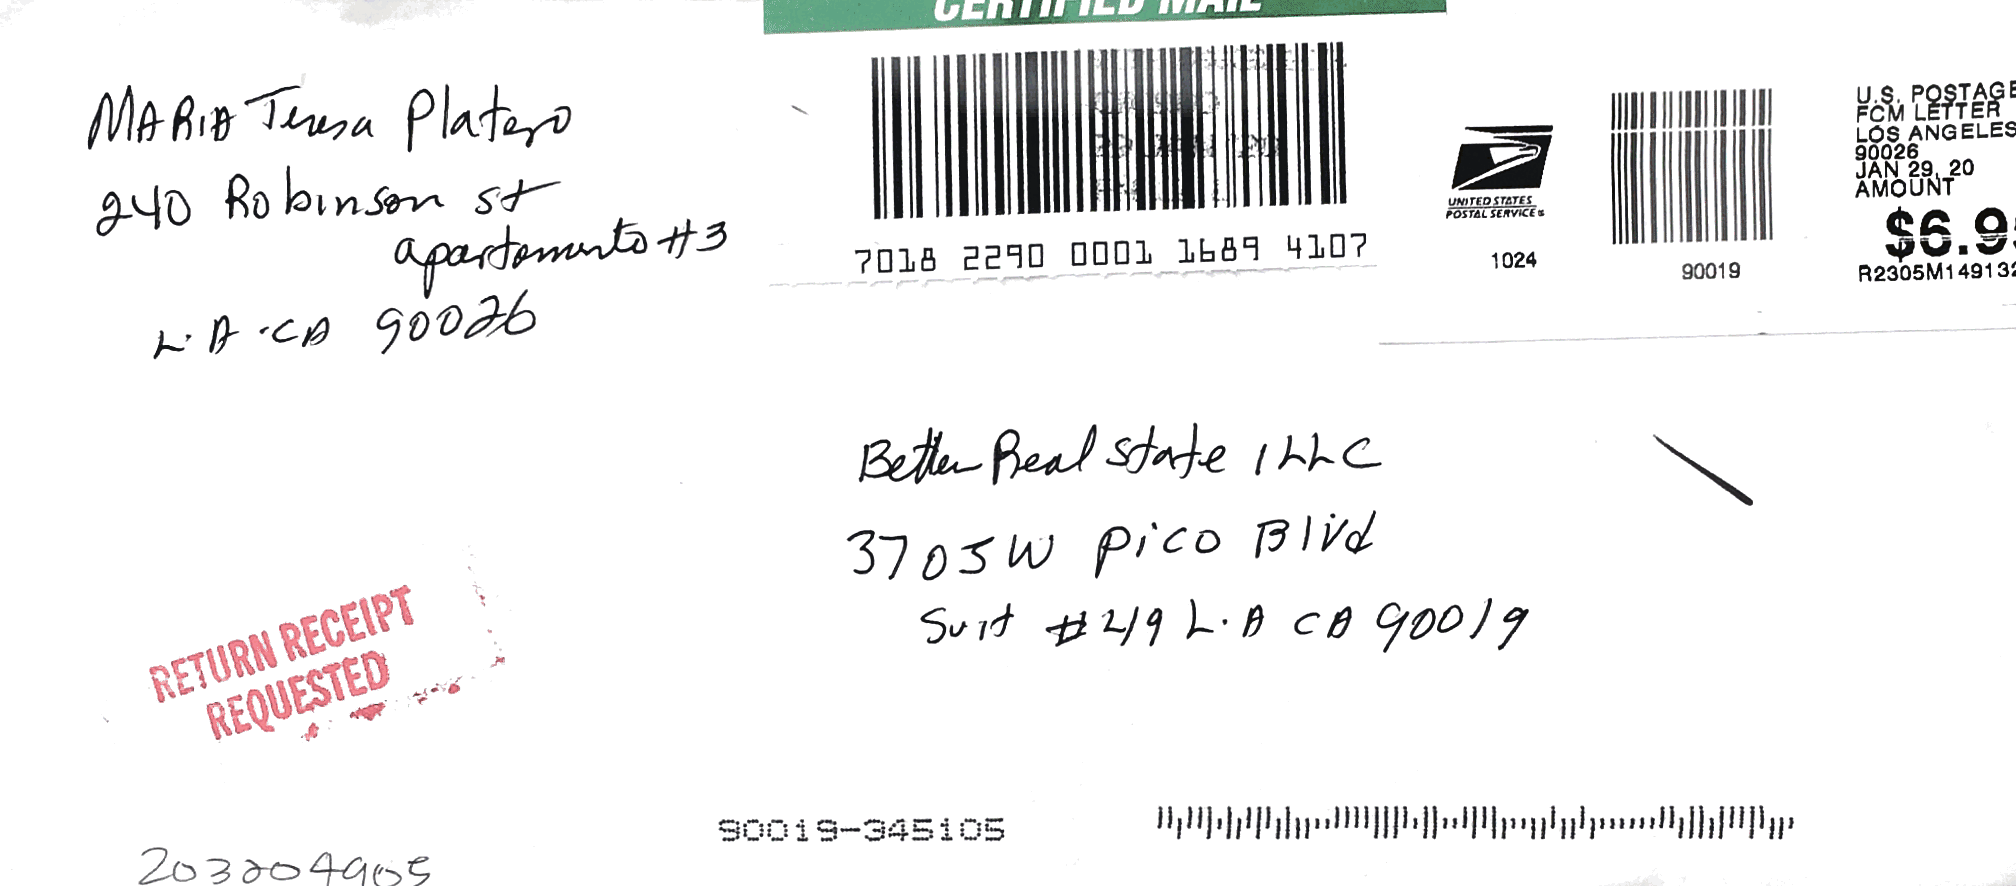 CERTIFIED MAIL
MARIA Teresa Platero
240 Robinson st
apartamento #3
L.A. CA 90026
7018 2290 0001 1689 4107
UNITED STATES
POSTAL SERVICE®
1024
90019
U.S. POSTAGE
FCM LETTER
LOS ANGELES
90026
JAN 29, 20
AMOUNT
$6.9
R2305M14913
Better Real State 1LLC
3705 W Pico Blvd
Suit #219 L.A CA 90019
RETURN RECEIPT
REQUESTED
90019-345105
203204905